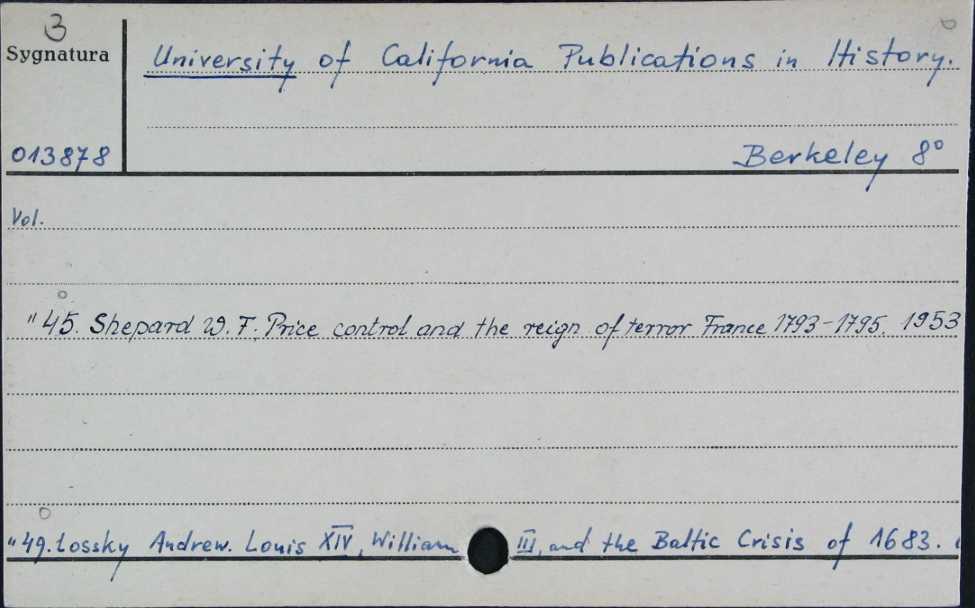 3
Sygnatura
University of California Publications in History.
013878
Berkeley 8°
Vol.
" 45. Shepard W. F. Price control and the reign of terror France 1793-1795. 1953
" 49. Łossky Andrew. Louis XIV, William III, and the Baltic Crisis of 1683.